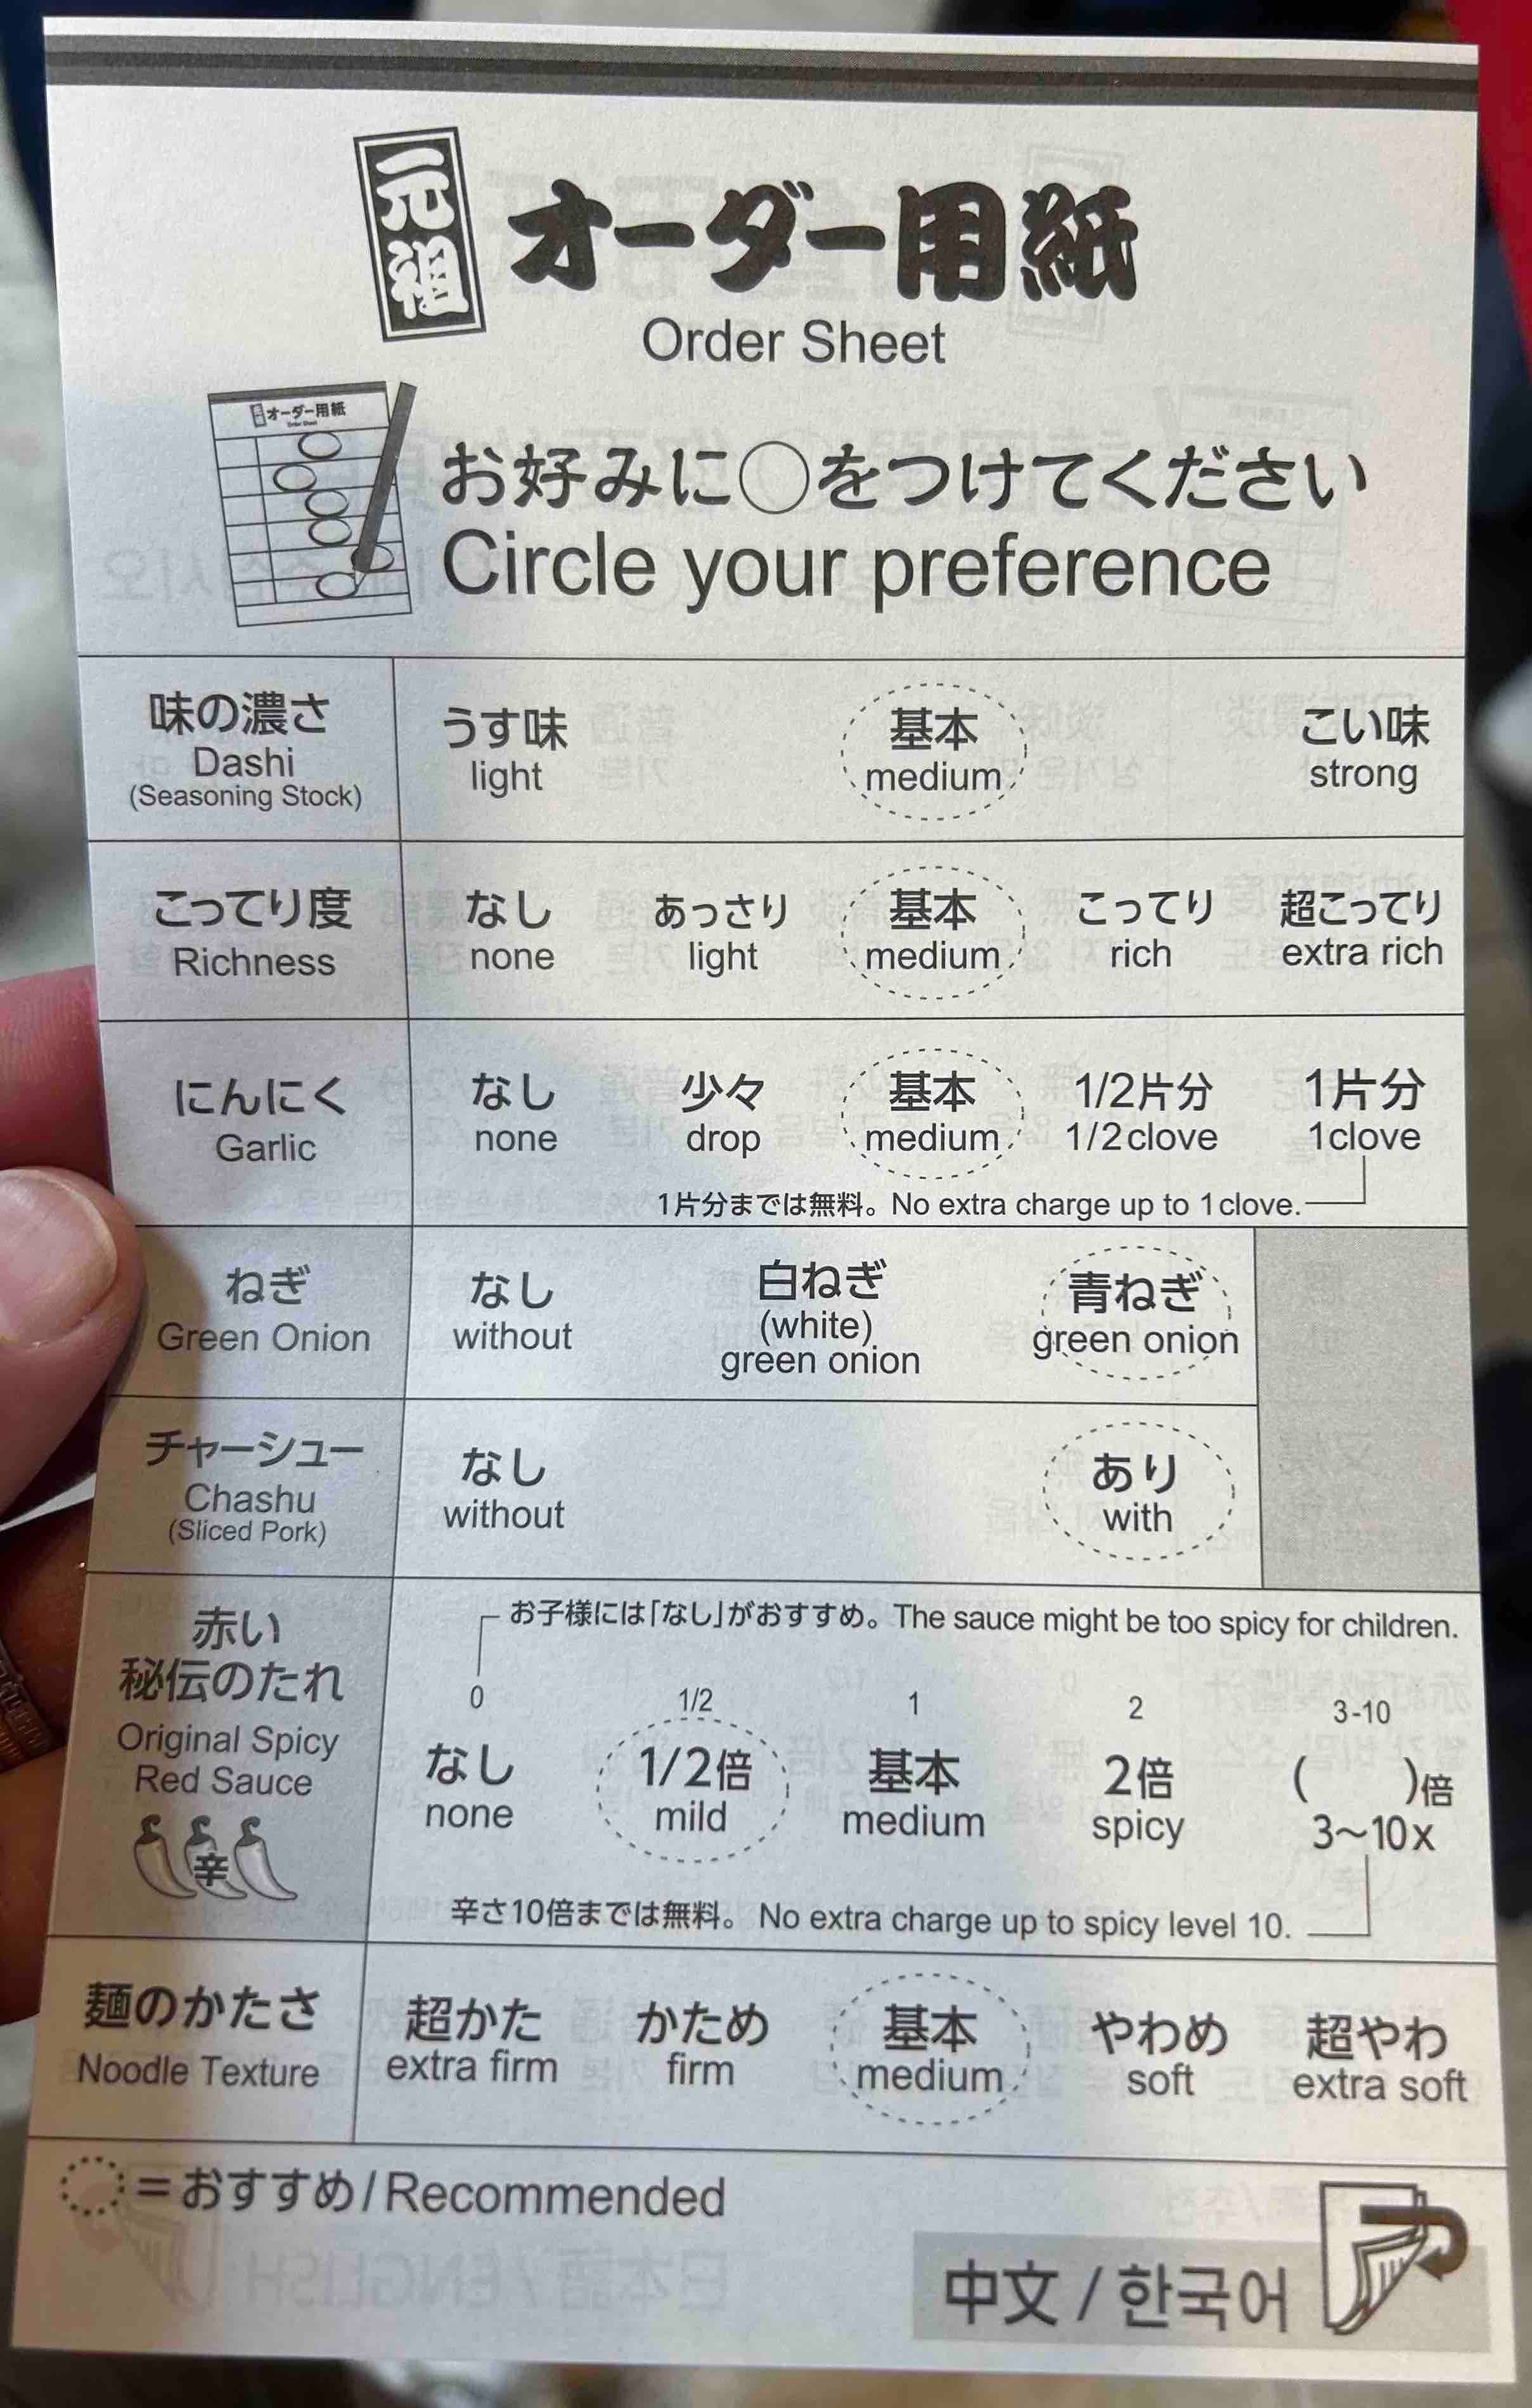 元祖
オーダー用紙
Order Sheet
オーダー用紙
Order Sheet
お好みに○をつけてください
Circle your preference
味の濃さ
Dashi
(Seasoning Stock)
うす味
light
基本
medium
こい味
strong
こってり度
Richness
なし
none
あっさり
light
基本
medium
こってり
rich
超こってり
extra rich
にんにく
Garlic
なし
none
少々
drop
基本
medium
1/2片分
1/2clove
1片分
1clove
1片分までは無料。No extra charge up to 1clove.
ねぎ
Green Onion
なし
without
白ねぎ
(white)
green onion
青ねぎ
green onion
チャーシュー
Chashu
(Sliced Pork)
なし
without
あり
with
赤い
秘伝のたれ
Original Spicy
Red Sauce
辛
お子様には「なし」がおすすめ。The sauce might be too spicy for children.
0
なし
none
1/2
1/2倍
mild
1
基本
medium
2
2倍
spicy
3-10
( )倍
3～10x
辛さ10倍までは無料。No extra charge up to spicy level 10.
麺のかたさ
Noodle Texture
超かた
extra firm
かため
firm
基本
medium
やわめ
soft
超やわ
extra soft
=おすすめ/Recommended
中文/한국어